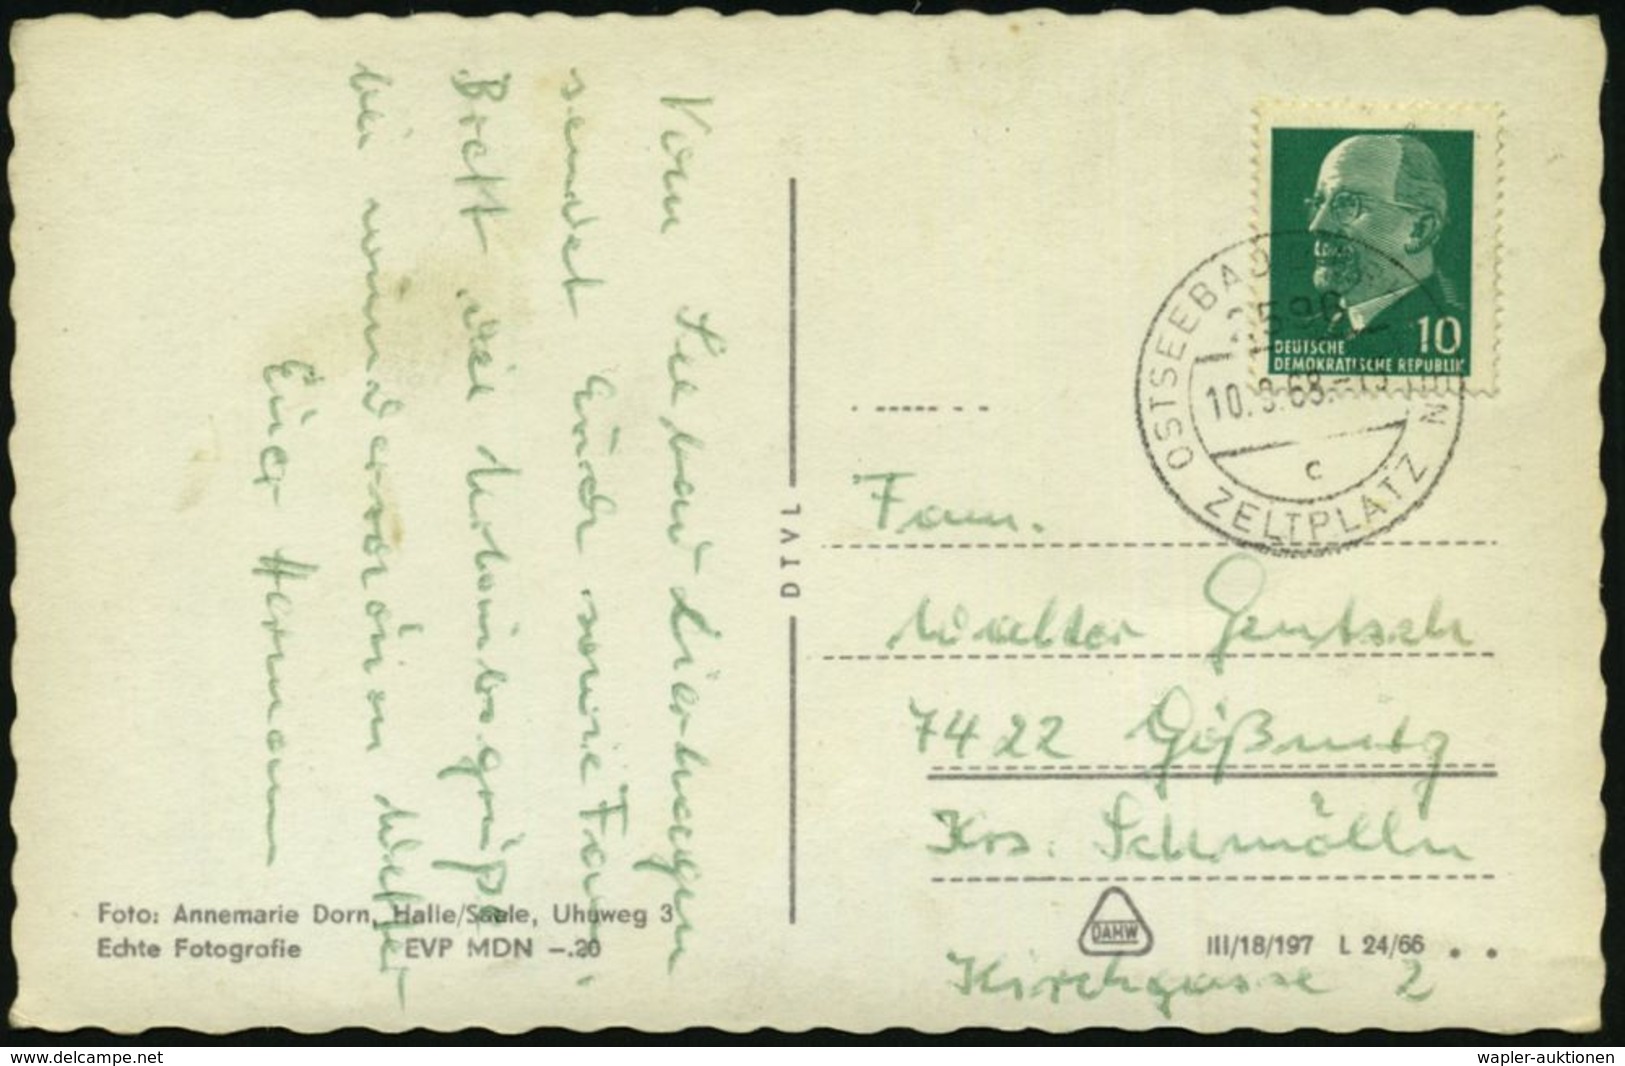 Vom Seebad Dierhagen
sendet Euch sowie Fam.
Brett die Urlaubsgrüße
bei wunderschönen Wetter
Euer Hermann
Foto: Annemarie Dorn, Halle/Saale, Uhuweg 3
Echte Fotografie EVP MDN –.20
DTVL
DEUTSCHE 10
DEMOKRATISCHE REPUBLIK
OSTSEEBAD
2598
10.9.68
c
ZELTPLATZ
Fam.
Walter Gentsch
7422 Gößnitz
Krs. Schmölln
Kirchgasse 2
DAHW
III/18/197 L 24/66
www.delcampe.net
wapler-auktionen